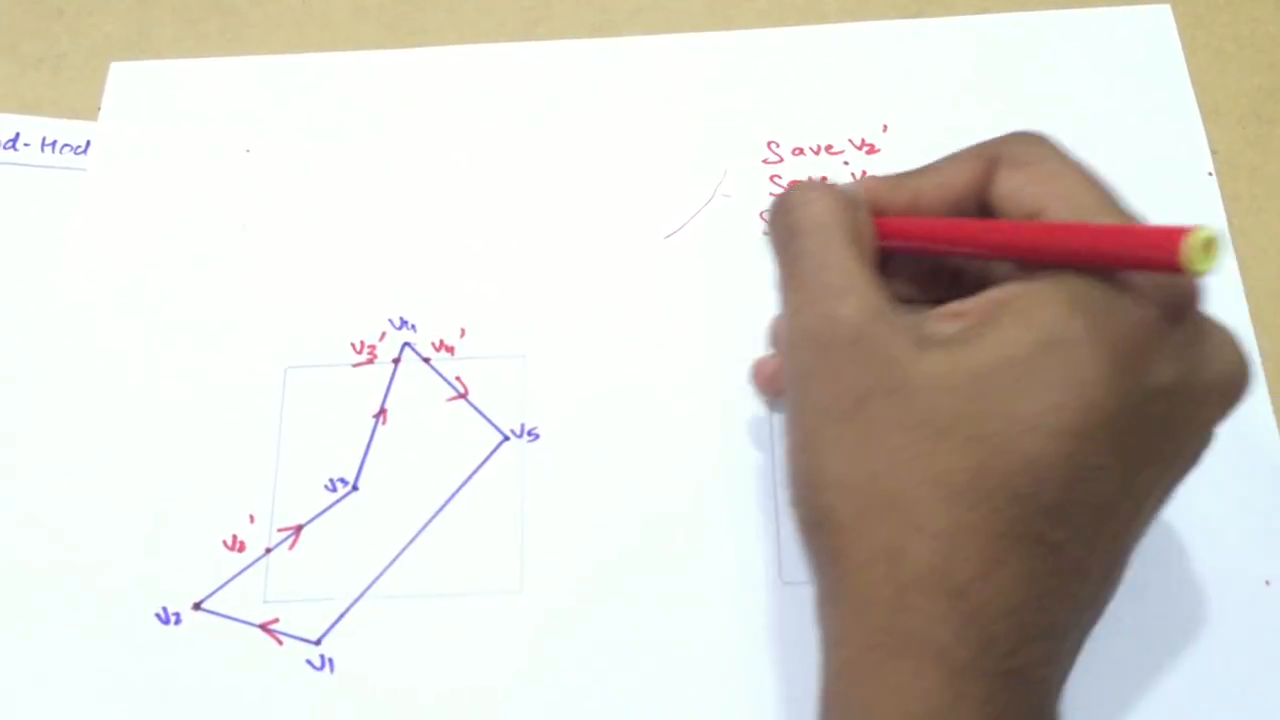 d-Hod
Save V2'
Save
V4
V3'
V4'
V5
V3
V2'
V2
V1